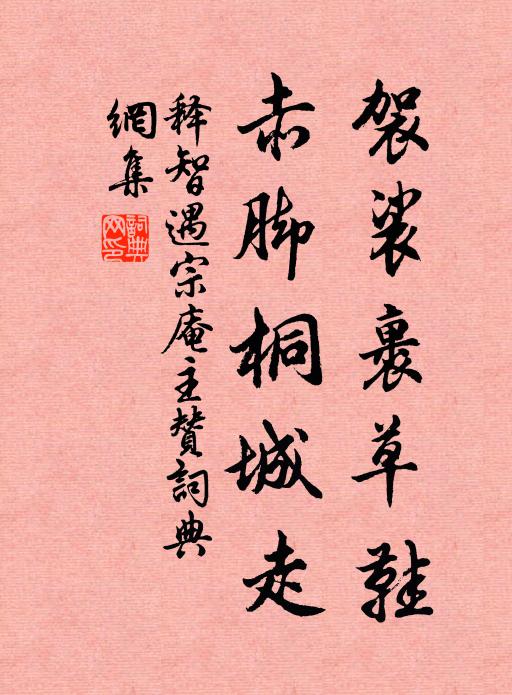 袈裟裹草鞋
赤脚桐城走
释智遇宗庵主赞詞典
網集
詞典
网印